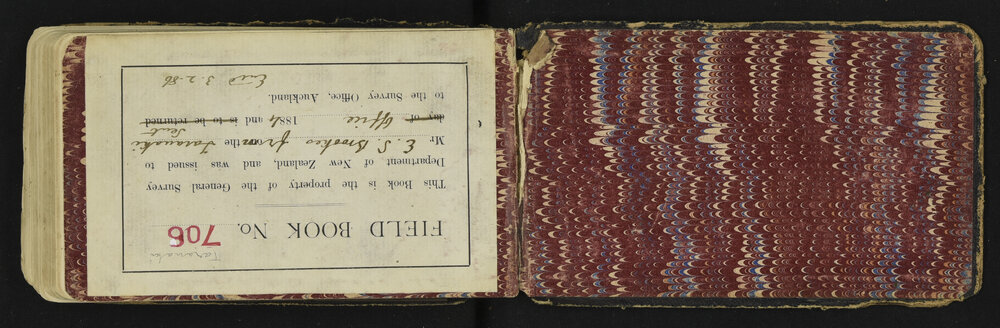 Taranaki
FIELD BOOK No. 706
This Book is the property of the General Survey
Department of New Zealand, and was issued to
Mr E. S. Brookes from the Taranaki
day of Office 1884 and is to be returned
to the Survey Office, Auckland.
End 3-2-86